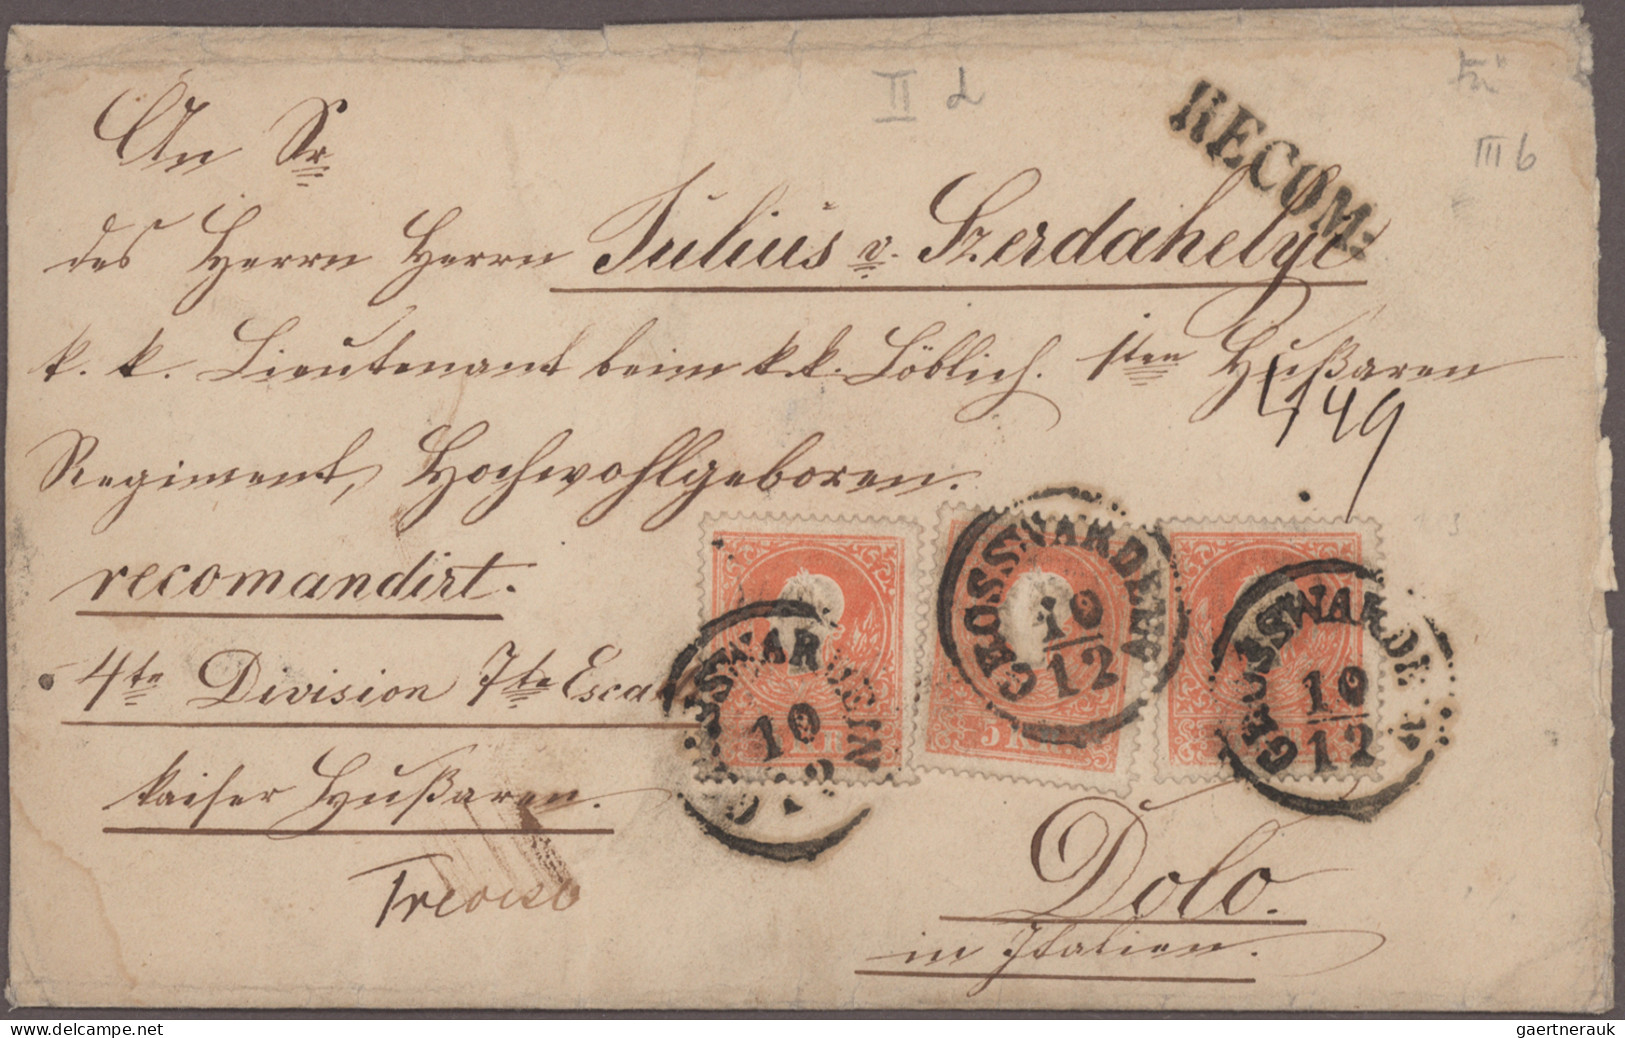 II d
III b
RECOM:
An Sr
des Herrn Herrn Julius v. Szerdahelyi
k. k. Lieutenant beim k.k. Löblich. 1ten Hußaren
149
Regiment, Hochwohlgeboren.
recomandirt.
4te Division 7te Esca
kaiser Hußaren.
Treviso
GROSSWARDEIN
10
12
GROSSWARDEIN
10
12
5 KR
GROSSWARDEIN
10
12
Dolo.
in Italien.
www.delcampe.net
gaertnerauk